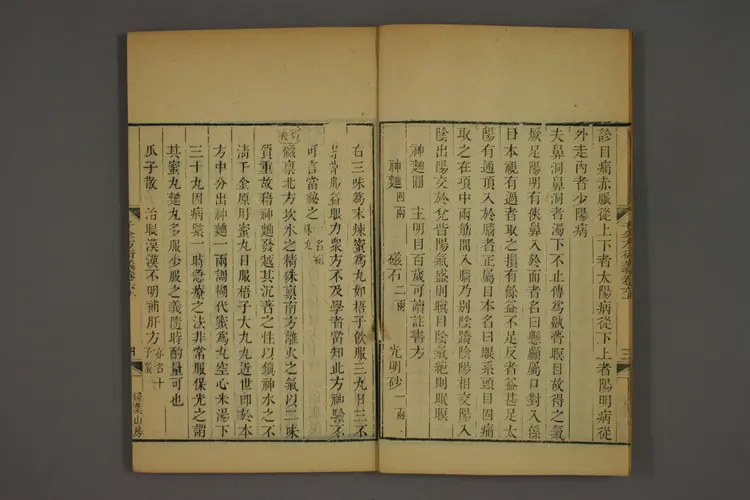 診目痛赤脈從上下者太陽病從下上者陽明病從
外走內者少陽病
夫鼻洞鼻洞者濁下不止傳為鼽瞢瞑目故得之氣
厥足陽明有俠鼻入於面者名曰懸顱屬口對入係
目本視有過者取之損有餘益不足反者益甚足太
陽有通項入於腦者正屬目本名曰眼系頭目固痛
取之在項中兩筋間入腦乃別陰蹻陰陽相交陽入
陰出陽交於兌眥陽氣盛則瞋目陰氣絕則眠
神麴圓 主明目百歲可讀註書方
神麴四兩 磁石二兩 光明砂一兩
右三味為末煉蜜為丸如梧子飲服三九日三不
禁常服益眼力衆方不及學者當知此方神驗不
可言當秘之 一名磁朱丸
衍義 磁稟北方坎水之精硃稟南方離火之氣以二味
質重故藉神麴發越其沉著之性以鎮神水之不
清千金原用蜜丸日服梧子大九九近世即於本
方中分出神麴一兩調糊代蜜為丸空心米湯下
三十九因病緊一時急療之法非常服保光之謂
其蜜丸麴丸多服少服之義隨時酌量可也
瓜子散 治眼漠漠不明補肝方 亦名十子散
千金方衍義卷六上
三
四
掃葉山房